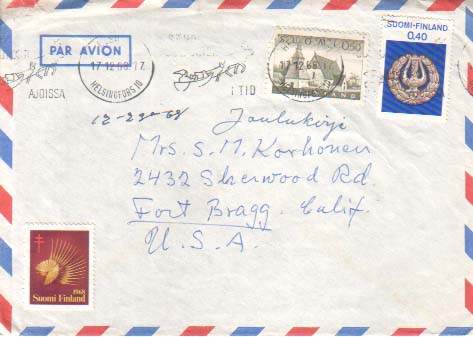 PAR AVION
17.12.68
HELSINGFORS 10
AJOISSA
I TID
17.12.68
SUOMI-FINLAND
0.40
12-23-68
Joulukirje
Mrs. S. M. Korhonen
2432 Sherwood Rd.
Fort Bragg. Calif.
U. S. A.
1968
Suomi Finland